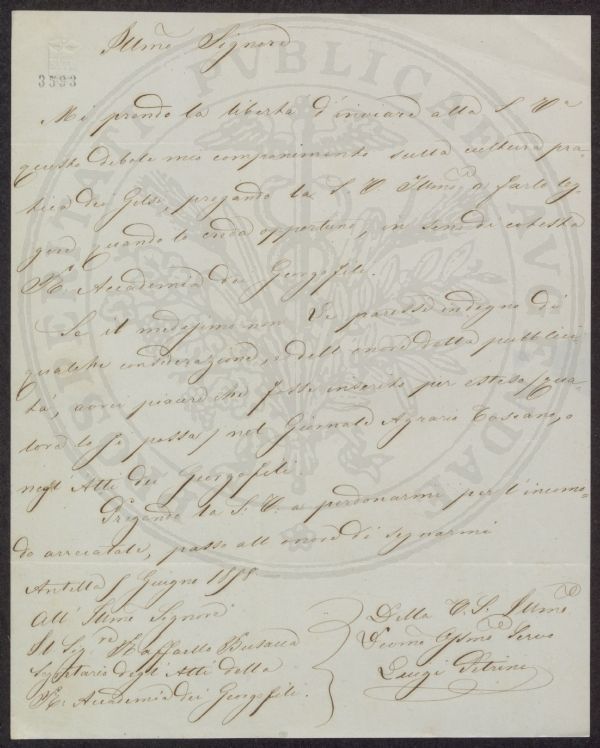 Illmo Signore
3593
Mi prendo la libertà d'inviare alla S. Va
questo debole mio componimento sulla cultura pra-
tica dei Gelsi, pregando la S. V. Illma a farlo leg-
gere quando lo creda opportuno, in seno di cotesta
Rl Accademia dei Georgofili.
Se il medesimo non Le paresse indegno di
qualche considerazione, e dell'onore della pubblici
tà, avrei piacere che fosse inserito per esteso (qua
lora lo si possa) nel Giornale Agrario Toscano, o
negl'Atti dei Georgofili.
Pregando la S. V. a perdonarmi per l'incomo-
do arrecatale, passo all'onore di segnarmi
Antella Giugno
All' Illmo Signore
Il Sigre Raffaello Busacca
Segretario degl'Atti della
Rl Accademia dei Georgofili.
Della V. S. Illma
Devmo Servo
Luigi Petrini
PROSPERITATI PVBLICAE AVGENDAE